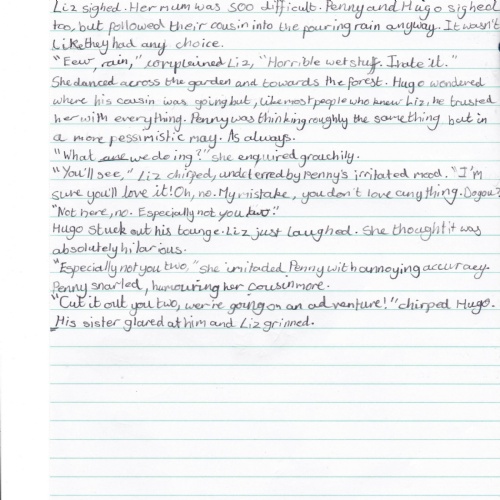 Liz sighed. Her mum was SOO difficult. Penny and Hugo sighed
too, but followed their cousin into the pouring rain anyway. It wasn't
like they had any choice.
"Eew, rain," complained Liz, "Horrible wet stuff. I hate it."
She danced across the garden and towards the forest. Hugo wondered
where his cousin was going but, like most people who knew Liz, he trusted
her with everything. Penny was thinking roughly the same thing but in
a more pessimistic way. As always.
"What are we doing?" she enquired grouchily.
"You'll see," Liz chirped, undeterred by Penny's irritated mood. "I'm
sure you'll love it! Oh, no. My mistake, you don't love anything. Do you?"
"Not here, no. Especially not you two."
Hugo stuck out his tounge. Liz just laughed. She thought it was
absolutely hilarious.
"Especially not you two," she imitaded Penny with annoying accuracy.
Penny snarled, humouring her cousin more.
"Cut it out you two, we're going on an adventure!" chirped Hugo.
His sister glared at him and Liz grinned.